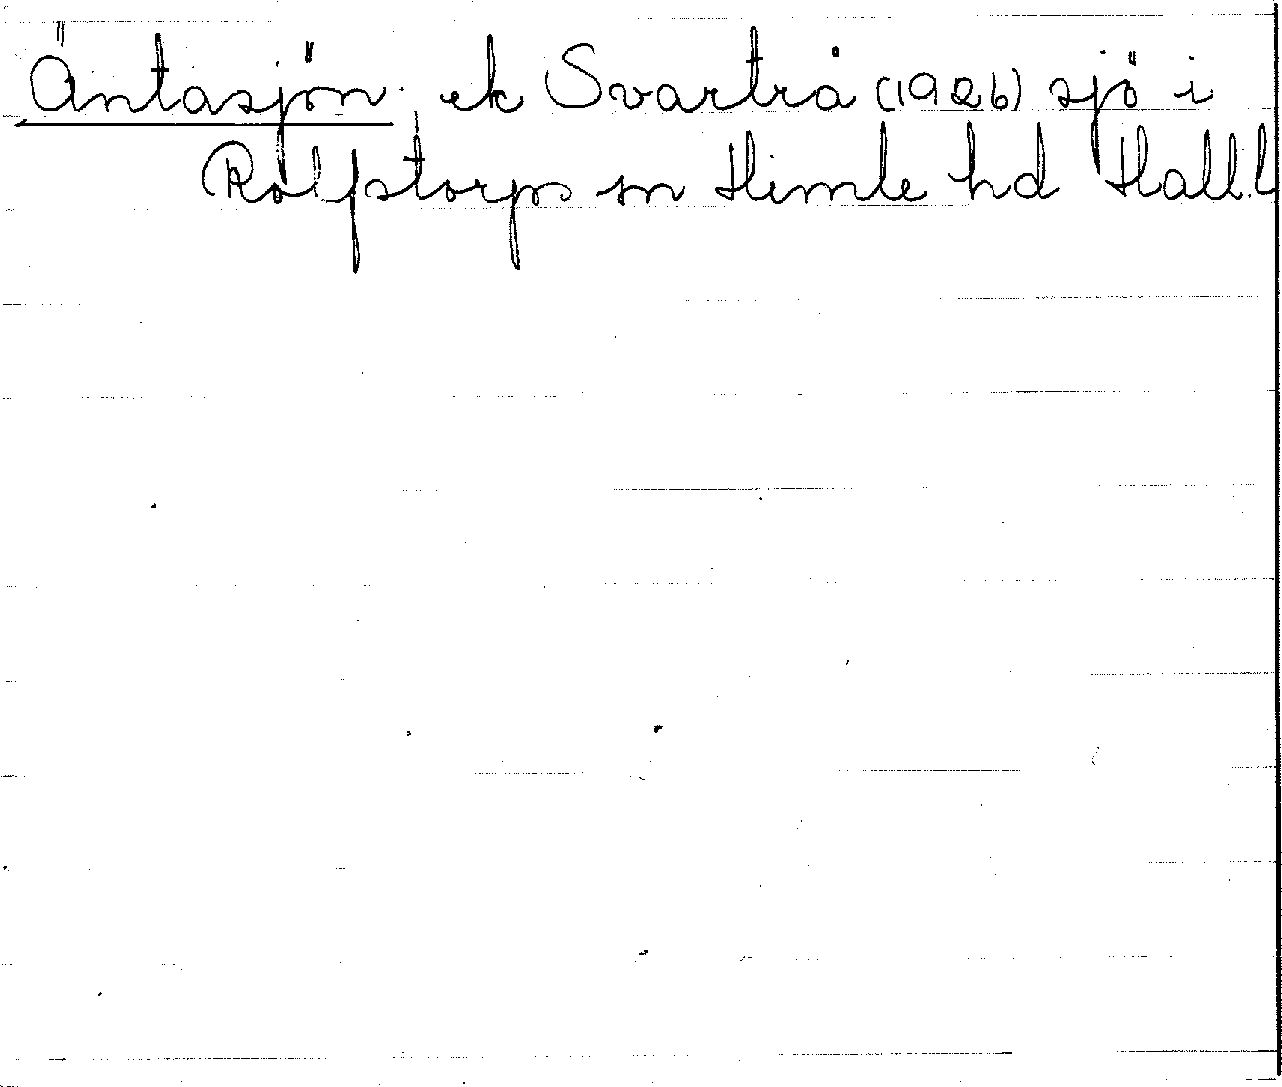 Äntasjön, ek Svartrå (1926) sjö i
Rolfstorps sn Himle hd Hall.l